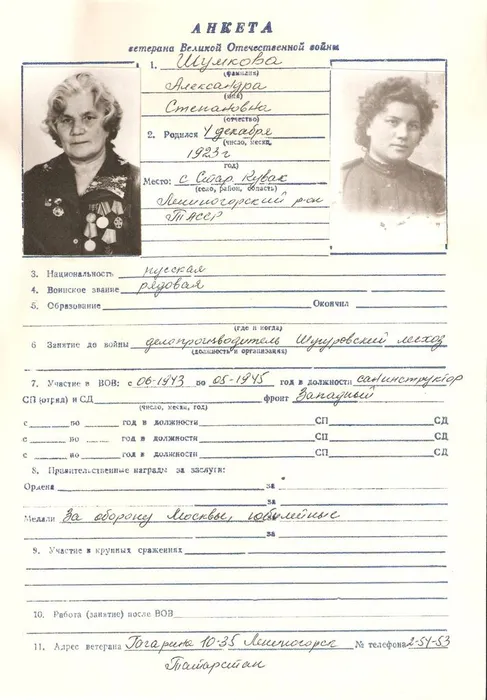 АНКЕТА
ветерана Великой Отечественной войны
1. Шумкова
(фамилия)
Александра
(имя)
Степановна
(отчество)
2. Родился 4 декабря
(число, месяц,
1923 г
год)
Место: с. Стар. Кувак
(село, район, область)
Лениногорский р-он
ТАССР
3. Национальность русская
4. Воинское звание рядовая
5. Образование Окончил
(где и когда)
6 Занятие до войны делопроизводитель Шугуровский лесхоз
(должность и организация)
7. Участие в ВОВ: с 06-1943 по 05-1945 год в должности санинструктор
СП (отряд) и СД фронт Западный
(число, месяц, год)
с по год в должности СП СД
с по год в должности СП СД
с по год в должности СП СД
8. Правительственные награды за заслуги:
Ордена за
за
Медали За оборону Москвы, юбилейные
за
9. Участие в крупных сражениях
10. Работа (занятие) после ВОВ
11. Адрес ветерана Гагарина 10-35 Лениногорск № телефона 2-54-53
Татарстан